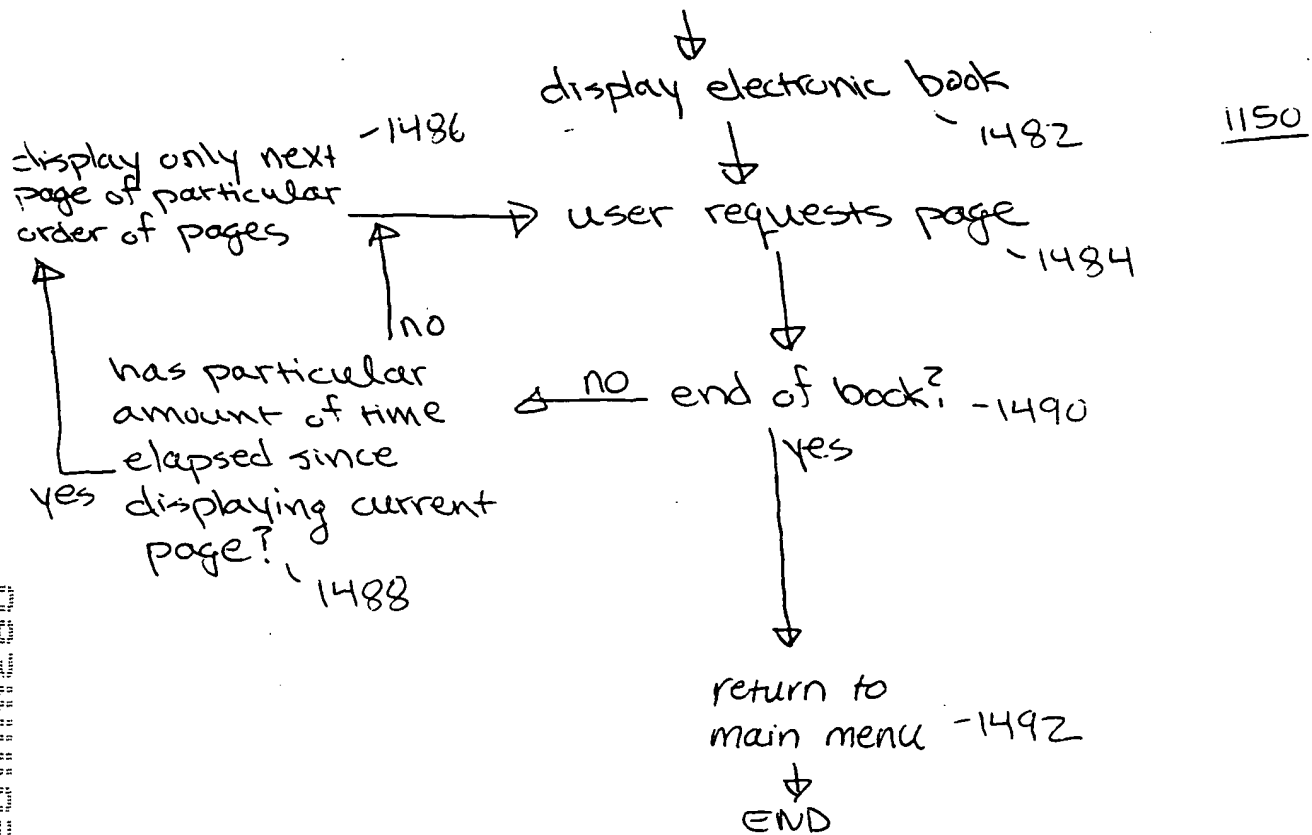 display electronic book
1482
1150
-1486
display only next
page of particular
order of pages
user requests page
-1484
no
has particular
amount of time
elapsed since
displaying current
page?
yes
1488
no
end of book? -1490
yes
return to
main menu -1492
END